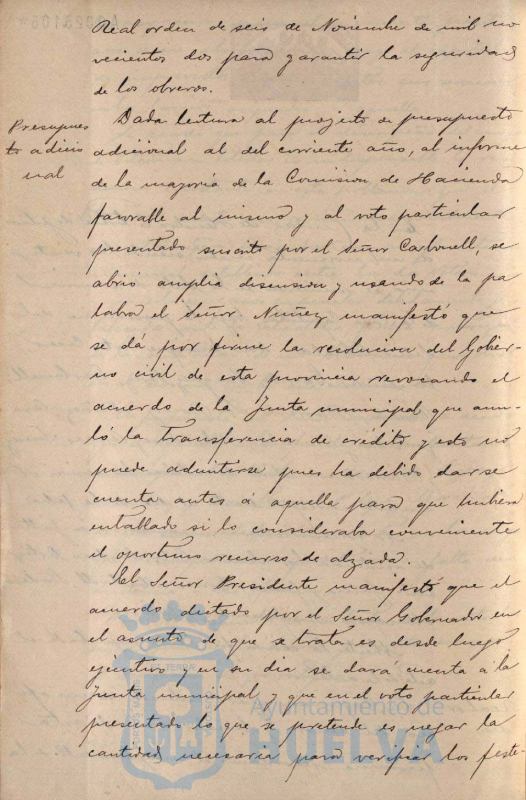 Real orden de seis de Noviembre de mil no
vecientos dos para garantir la seguridad
de los obreros.
Presupues
to adicio
nal
Dada lectura al proyecto de presupuesto
adicional al del corriente año, al informe
de la mayoria de la Comision de Hacienda
favorable al mismo y al voto particular
presentado suscrito por el Señor Carbonell, se
abrió amplia discusion y usando de la pa
labra el Señor Nuñez manifestó que
se dá por firme la resolucion del Gobier-
no civil de esta provincia revocando el
acuerdo de la Junta municipal que anu-
ló la transferencia de crédito y esto no
puede admitirse pues ha debido darse
cuenta antes á aquella para que hubiera
entablado si lo consideraba conveniente
el oportuno recurso de alzada.
El Señor Presidente manifestó que el
acuerdo dictado por el Señor Gobernador en
el asunto de que se trata es desde luego
ejecutivo y en su dia se dará cuenta á la
Junta municipal y que en el voto particular
presentado lo que se pretende es negar la
cantidad necesaria para verificar los feste-
Ayuntamiento de
HUELVA